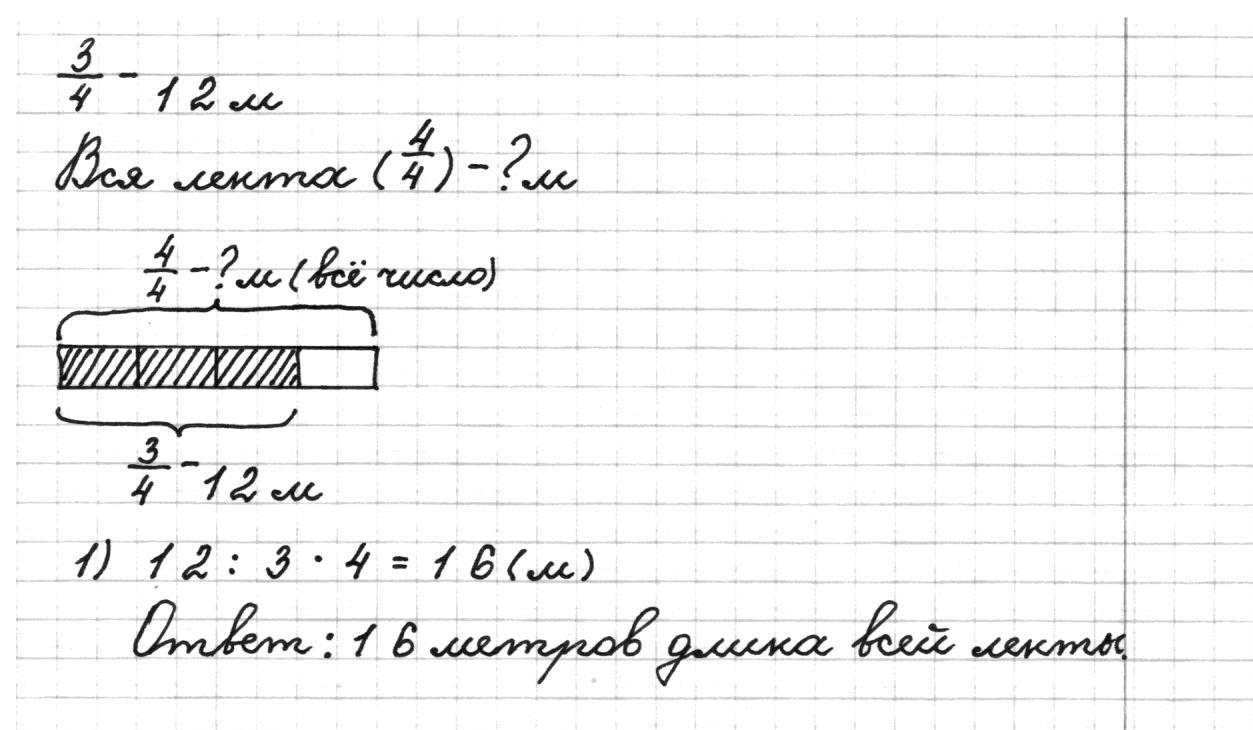 3/4 - 12 м
Вся лента (4/4) - ? м
4/4 - ? м (всё число)
3/4 - 12 м
1) 12 : 3 · 4 = 16 (м)
Ответ: 16 метров длина всей ленты.